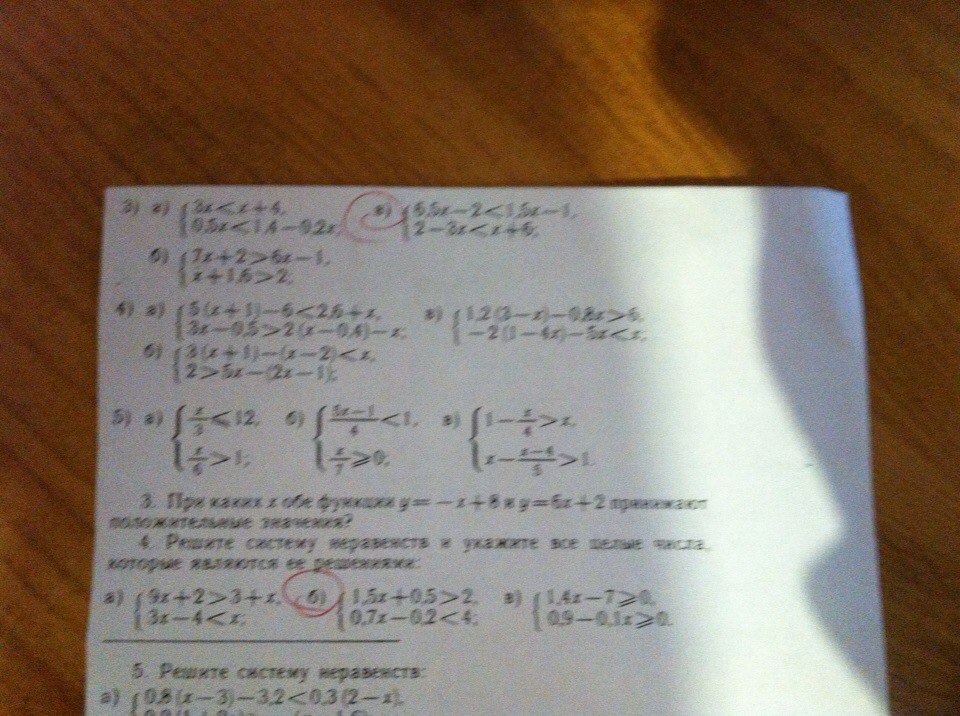 3) а) { 3x < x + 4, в) { 6,5x − 2 < 1,5x − 1,
0,5x < 1,4 − 0,2x; 2 − 3x < x + 6;
б) { 7x + 2 > 6x − 1,
x + 1,6 > 2;
4) а) { 5 (x + 1) − 6 < 2,6 + x, в) { 1,2 (3 − x) − 0,8x > 6,
3x − 0,5 > 2 (x − 0,4) − x; −2 (1 − 4x) − 5x < x;
б) { 3 (x + 1) − (x − 2) < x,
2 > 5x − (2x − 1);
5) а) { x/3 ⩽ 12, б) { (5x − 1)/4 < 1, в) { 1 − x/4 > x,
x/6 > 1; x/7 ⩾ 0; x − (x − 4)/5 > 1.
3. При каких x обе функции y = −x + 8 и y = 6x + 2 принимают
положительные значения?
4. Решите систему неравенств и укажите все целые числа,
которые являются ее решениями:
а) { 9x + 2 > 3 + x, б) { 1,5x + 0,5 > 2, в) { 1,4x − 7 ⩾ 0,
3x − 4 < x; 0,7x − 0,2 < 4; 0,9 − 0,1x ⩾ 0.
5. Решите систему неравенств:
а) { 0,8 (x − 3) − 3,2 < 0,3 (2 − x),